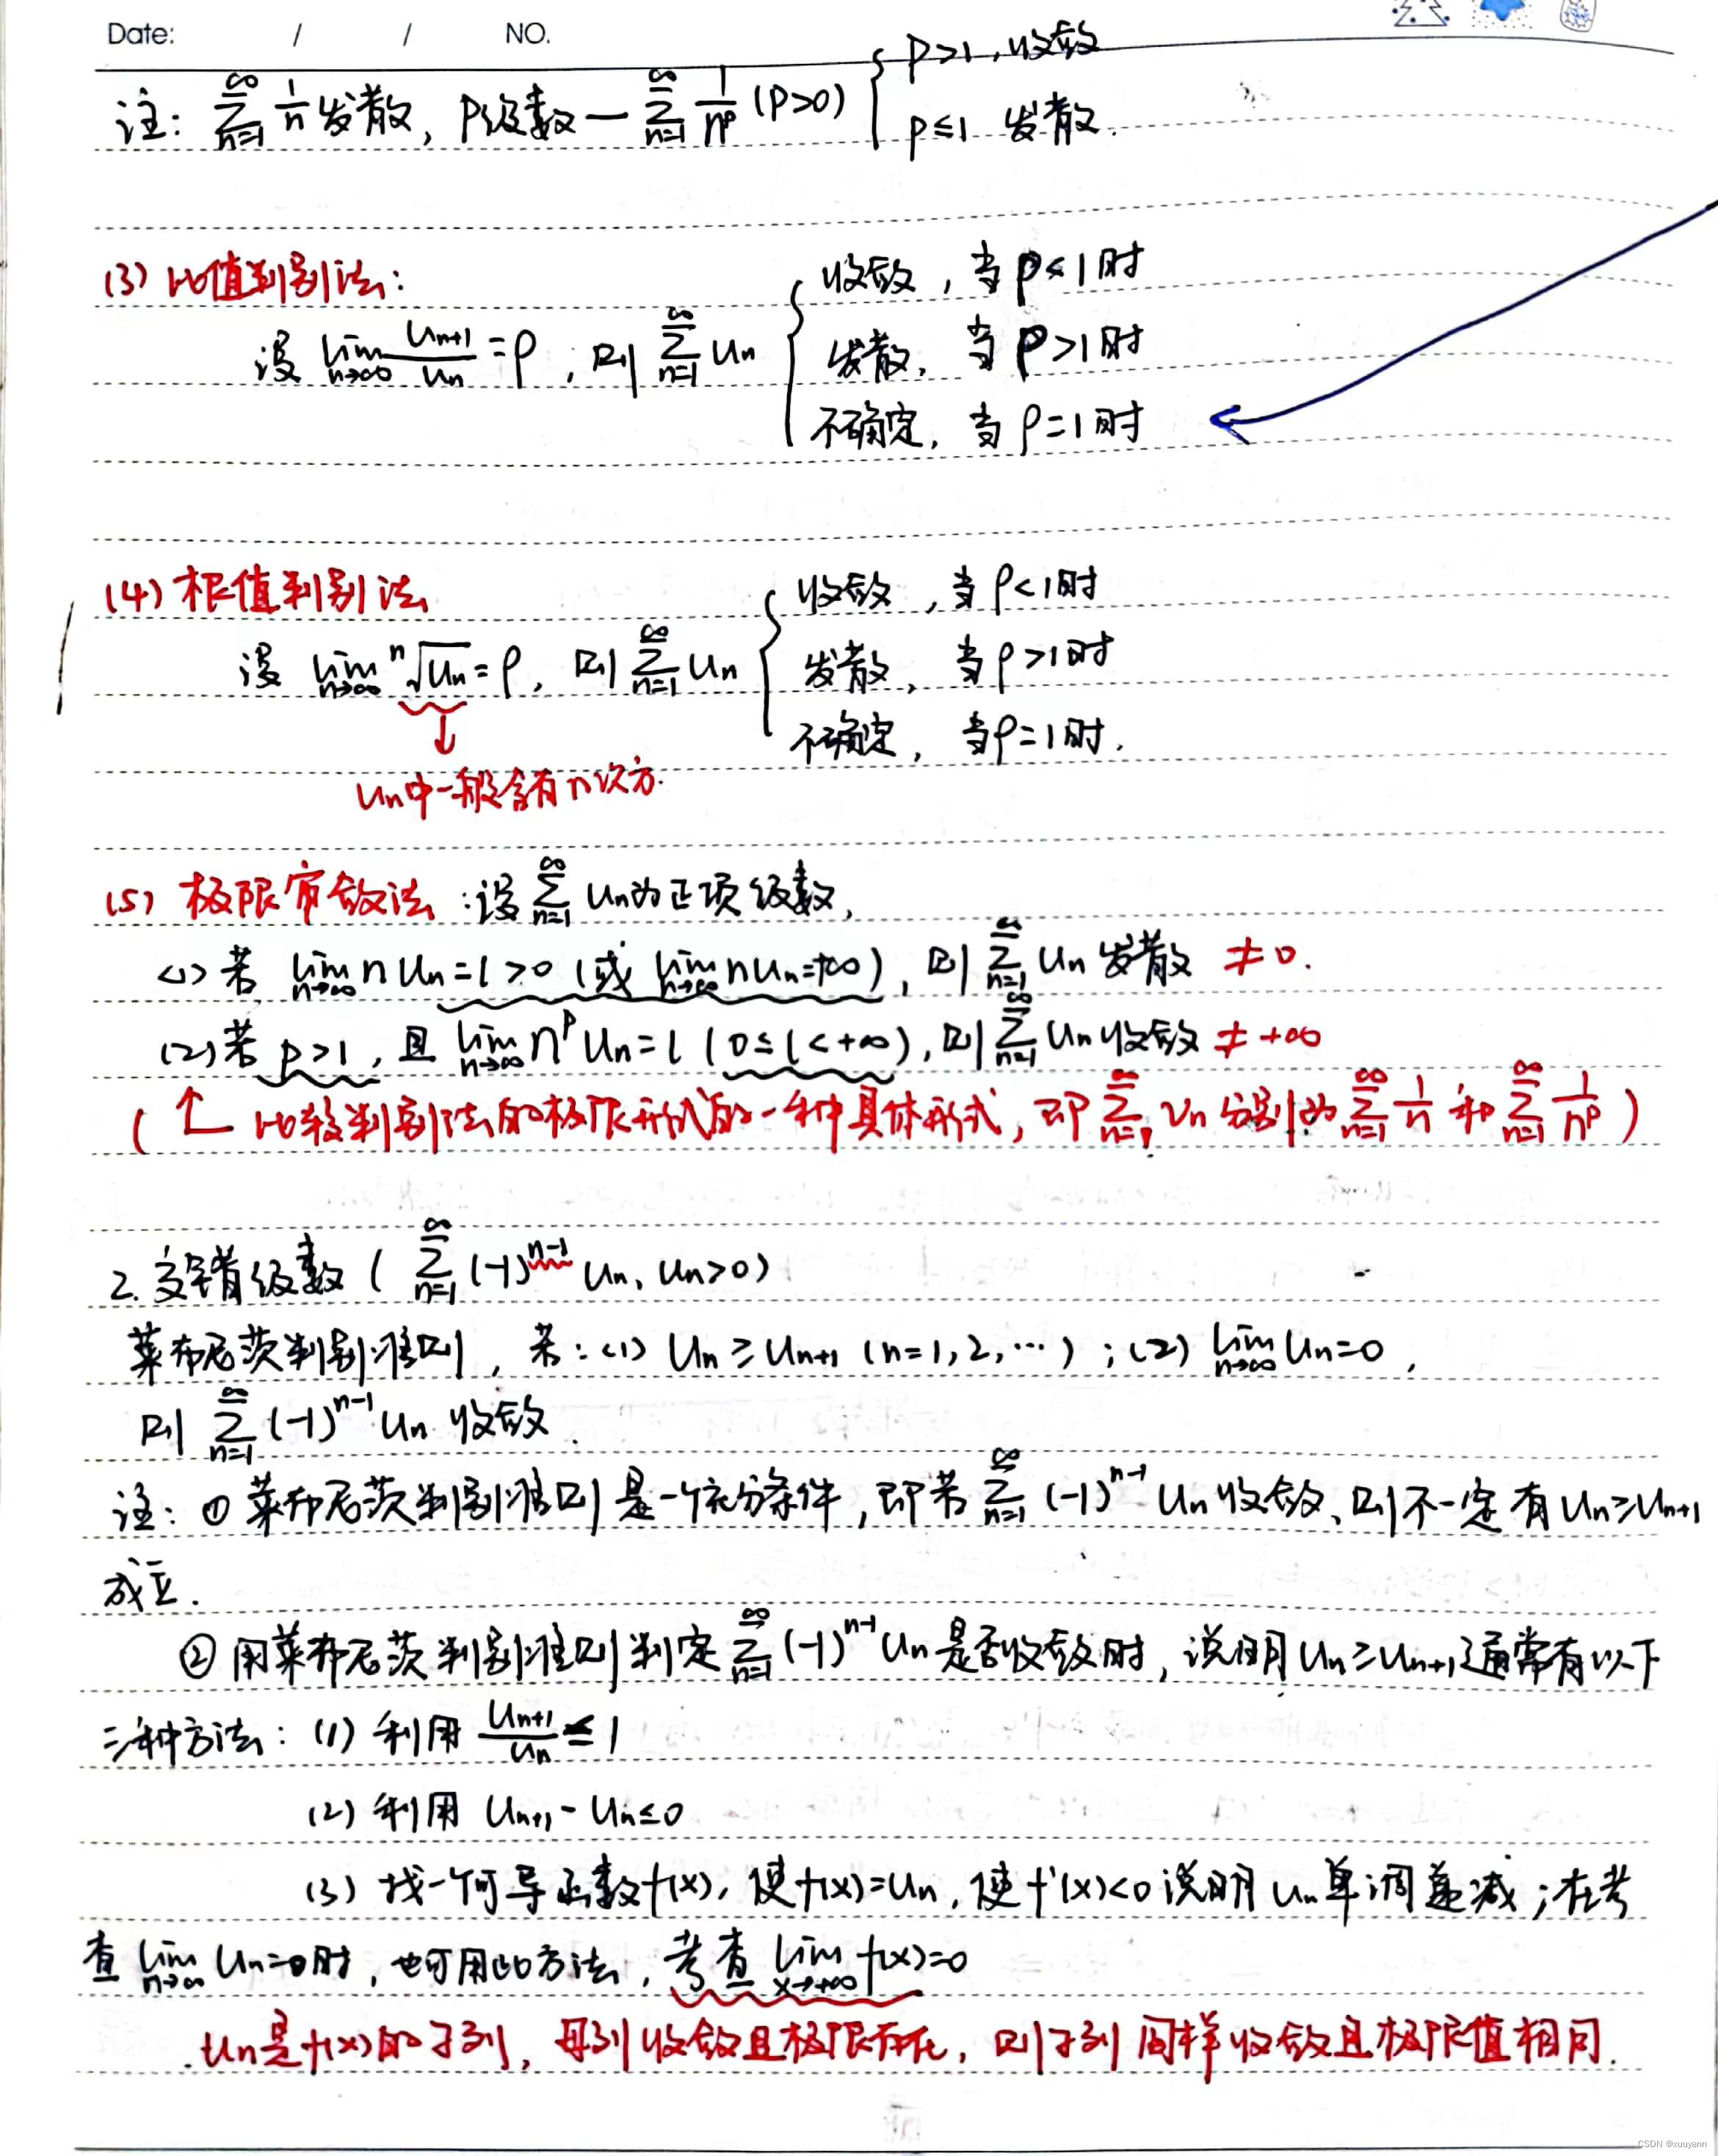 Date: / / NO.
注: ∑_{n=1}^{∞} 1/n 发散, P级数— ∑_{n=1}^{∞} 1/n^p (P>0) { p>1, 收敛
p≤1 发散.
(3) 比值判别法:
收敛, 当 ρ<1时
设 lim_{n→∞} u_{n+1}/u_n = ρ, 则 ∑_{n=1}^{∞} u_n { 发散, 当 ρ>1时
不确定, 当 ρ=1时
(4) 根值判别法
收敛, 当 ρ<1时
设 lim_{n→∞} ⁿ√u_n = ρ, 则 ∑_{n=1}^{∞} u_n { 发散, 当 ρ>1时
不确定, 当 ρ=1时.
↓
u_n中一般含有n次方.
(5) 极限审敛法: 设 ∑_{n=1}^{∞} u_n为正项级数,
(1) 若 lim_{n→∞} n u_n = l >0 (或 lim_{n→∞} n u_n=+∞), 则 ∑_{n=1}^{∞} u_n 发散 ≠0.
(2) 若 p>1, 且 lim_{n→∞} n^p u_n = l (0≤l<+∞), 则 ∑_{n=1}^{∞} u_n 收敛 ≠+∞
(↑ 比较判别法的极限形式的一种具体形式, 即 ∑_{n=1}^{∞} v_n 分别为 ∑_{n=1}^{∞} 1/n 和 ∑_{n=1}^{∞} 1/n^p)
2. 交错级数 ( ∑_{n=1}^{∞} (-1)^{n-1} u_n, u_n>0)
莱布尼茨判别准则, 若: (1) u_n ≥ u_{n+1} (n=1,2,…); (2) lim_{n→∞} u_n=0,
则 ∑_{n=1}^{∞} (-1)^{n-1} u_n 收敛.
注: ① 莱布尼茨判别准则是一个充分条件, 即若 ∑_{n=1}^{∞} (-1)^{n-1} u_n 收敛, 则不一定有 u_n≥u_{n+1}
成立.
② 用莱布尼茨判别准则判定 ∑_{n=1}^{∞} (-1)^{n-1} u_n 是否收敛时, 说明 u_n≥u_{n+1} 通常有以下
三种方法: (1) 利用 u_{n+1}/u_n ≤ 1
(2) 利用 u_{n+1} - u_n≤0
(3) 找一个可导函数f(x), 使f(x)=u_n, 使f'(x)<0 说明 u_n 单调递减; 在考
查 lim_{n→∞} u_n=0时, 也可用此方法, 考查 lim_{x→+∞} f(x)=0
u_n是f(x)的子列, 母列收敛且极限存在, 则子列同样收敛且极限值相同.
CSDN @xuuyann